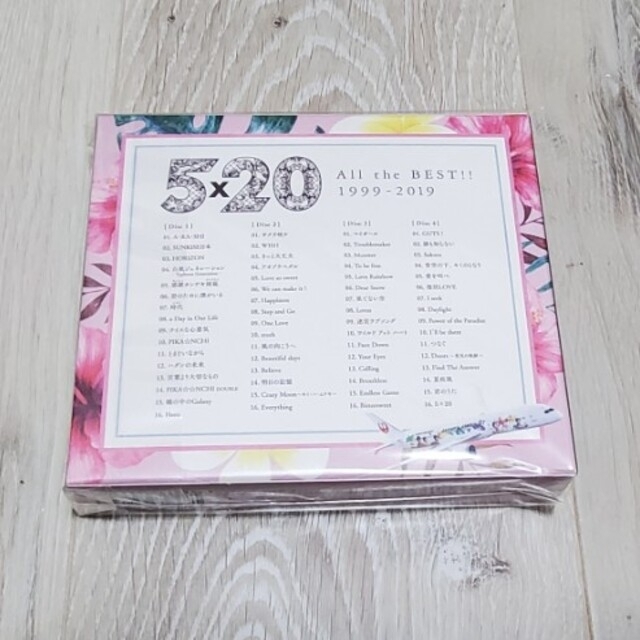 5×20 All the BEST!!
1999-2019
[Disc 1]
02. SUNRISE日本
03. HORIZON
07. 時代
08. a Day in Our Life
09. ナイスな心意気
10. PIKA☆NCHI
11. とまどいながら
12. ハダシの未来
13. 言葉より大切なもの
14. PIKA★★NCHI DOUBLE
15. 瞳の中のGalaxy
16. Hero
[Disc 2]
01. サクラ咲ケ
02. WISH
03. きっと大丈夫
04. アオゾラペダル
05. Love so sweet
06. We can make it!
07. Happiness
08. Step and Go
09. One Love
10. truth
11. 風の向こうへ
12. Beautiful days
13. Believe
14. 明日の記憶
15. Crazy Moon
16. Everything
[Disc 3]
01. マイガール
02. Troublemaker
03. Monster
04. To be free
05. Love Rainbow
06. Dear Snow
07. 果てない空
08. Lotus
09. 迷宮ラブソング
10. ワイルド アット ハート
11. Face Down
12. Your Eyes
13. Calling
14. Breathless
15. Endless Game
16. Bittersweet
[Disc 4]
01. GUTS!
02. 誰も知らない
03. Sakura
04. 青空の下、キミのとなり
05. 愛を叫べ
06. 復活LOVE
07. I seek
08. Daylight
09. Power of the Paradise
10. I'll be there
11. つなぐ
12. Doors
13. Find The Answer
14. 夏疾風
15. 君のうた
16. 5×20